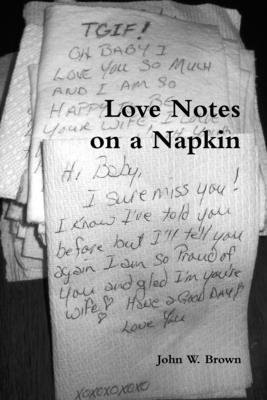 TGIF!
OH BABY I
LOVE YOU SO MUCH
AND I AM SO
HAPPY
YOUR WIFE, I
Love Notes
on a Napkin
Hi Baby,
I sure miss you!
I know I've told you
before but I'll tell you
again I am so Proud of
you and glad I'm you're
wife ♡ Have a Good Day!
Love You
John W. Brown
xoxoxoxoxo